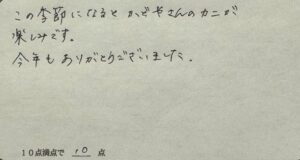 この季節になると かどやさんのカニが
楽しみです。
今年もありがとうございました。
10点満点で 10 点